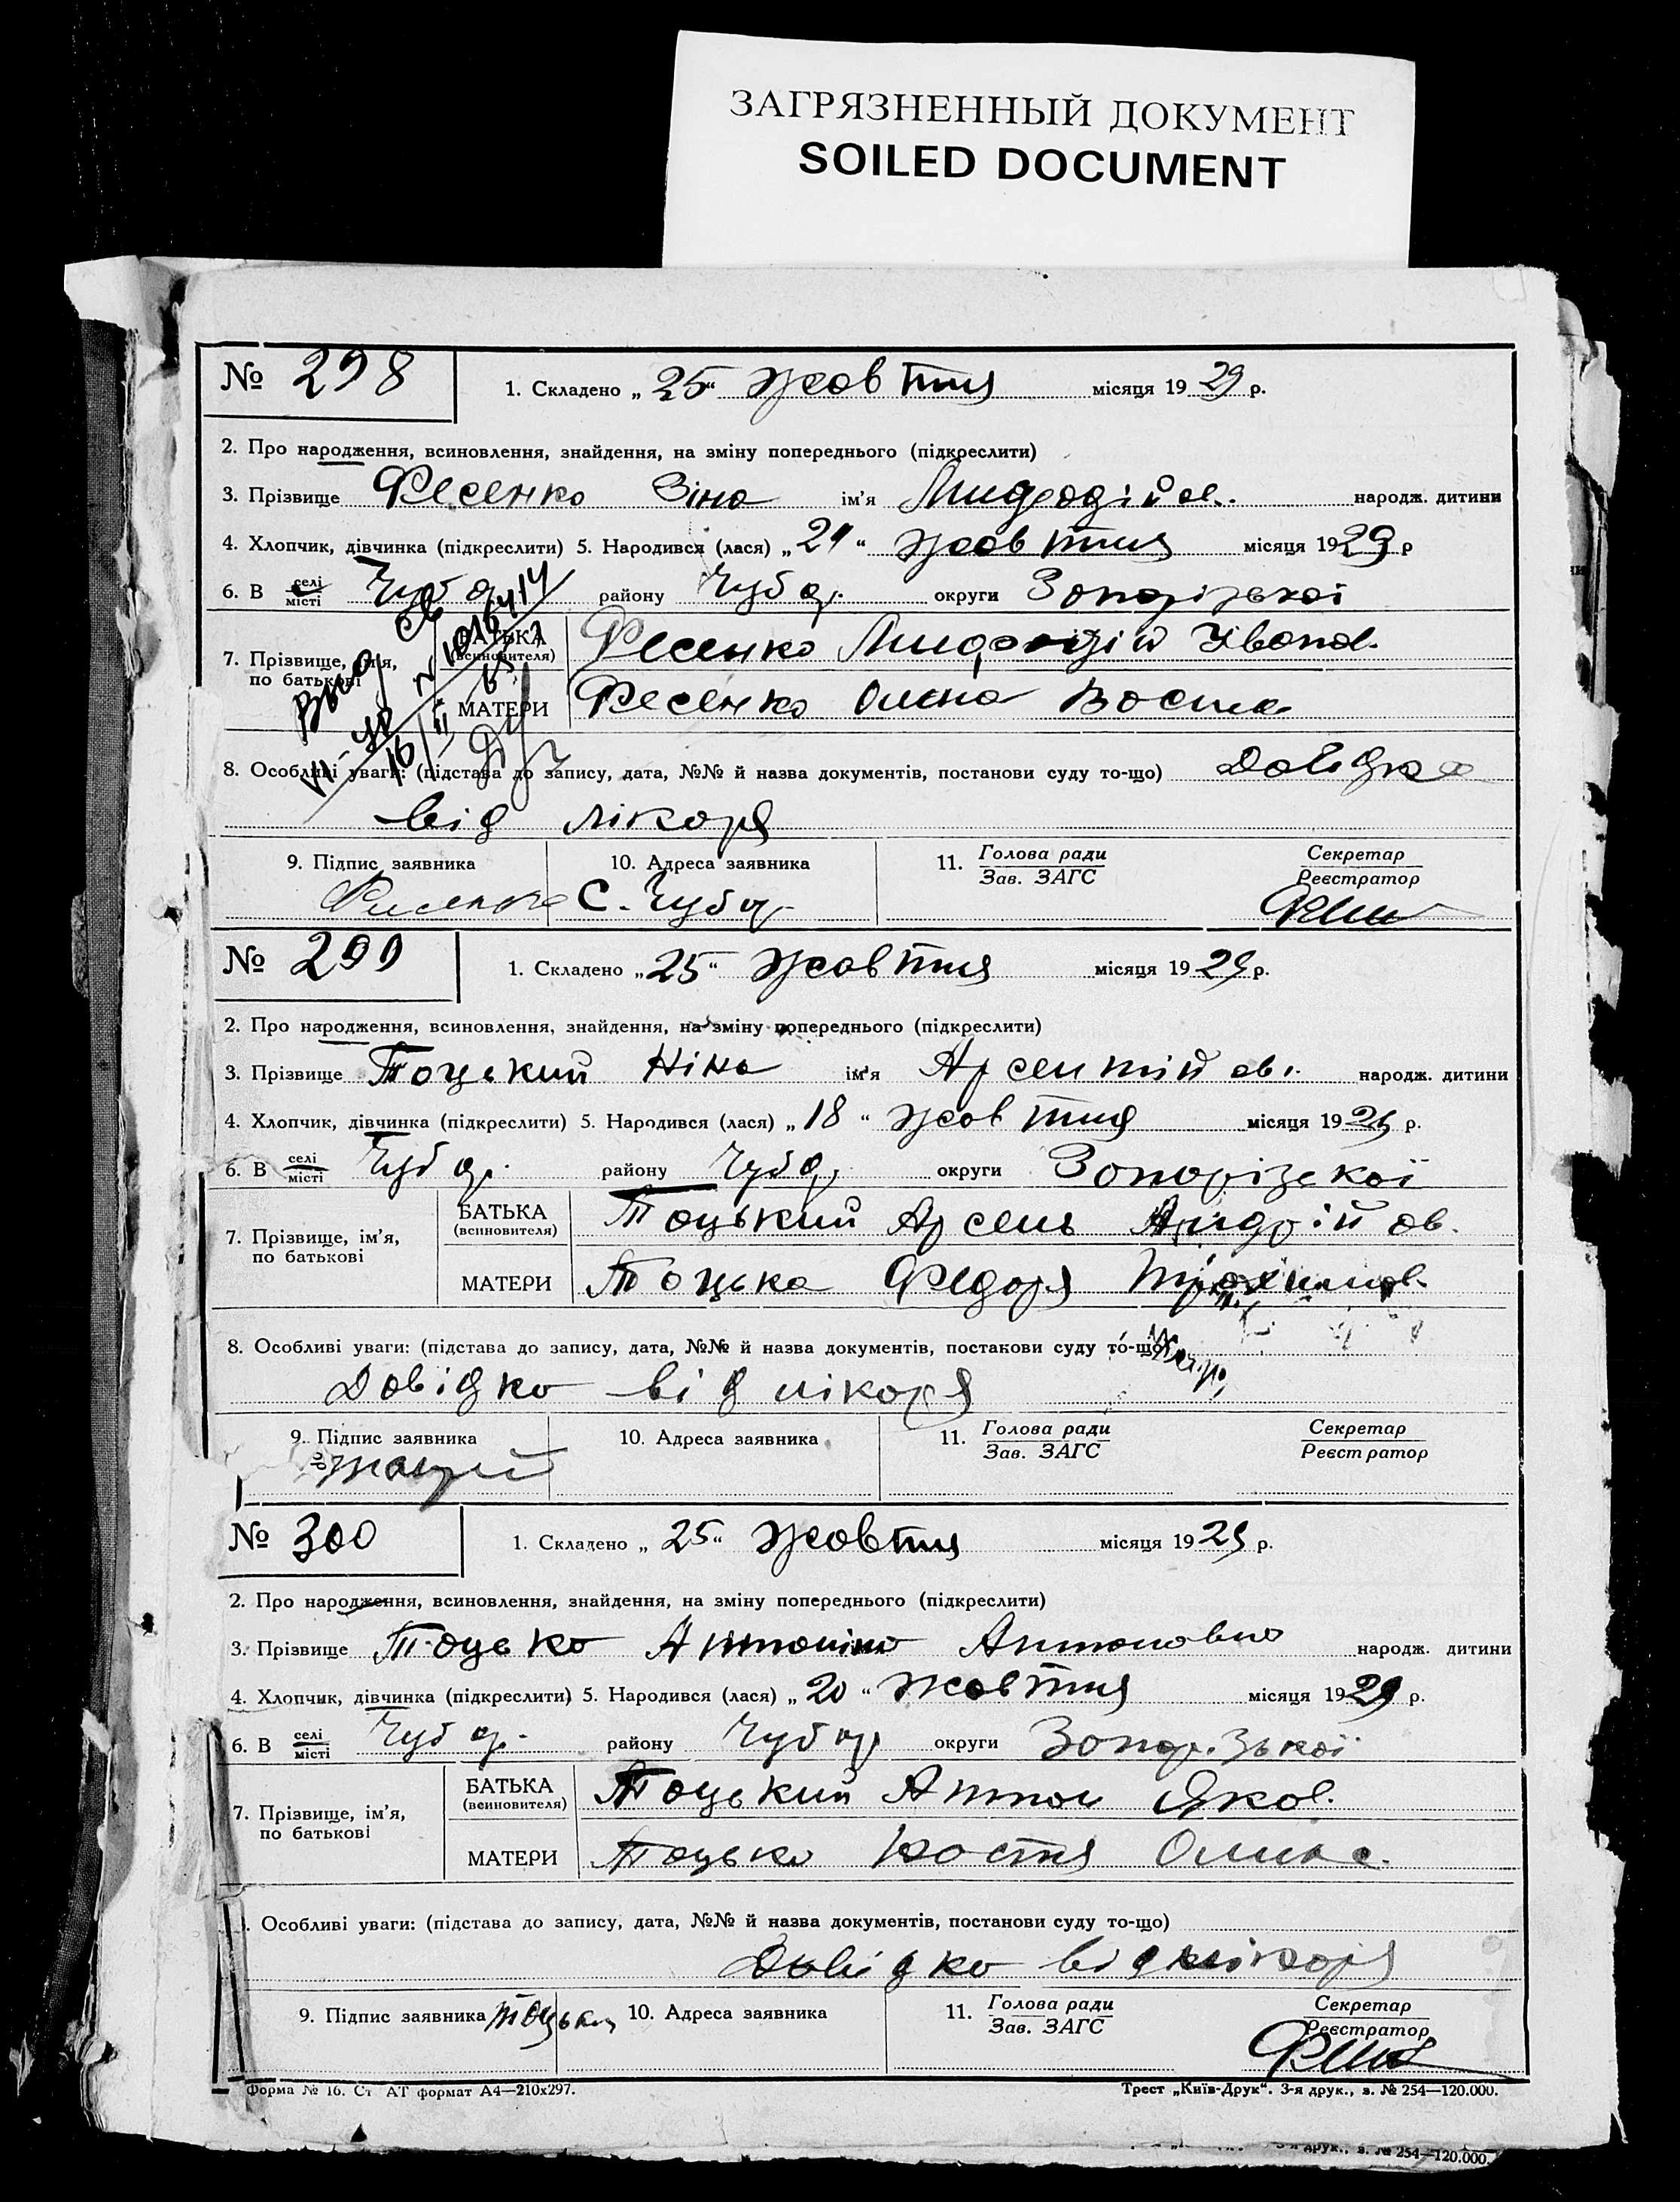 ЗАГРЯЗНЕННЫЙ ДОКУМЕНТ
SOILED DOCUMENT
№ 298
1. Складено „25“ жовтня місяця 1929 р.
2. Про народження, всиновлення, знайдення, на зміну попереднього (підкреслити)
3. Прізвище Фесенко Зіна ім'я народж. дитини
4. Хлопчик, дівчинка (підкреслити) 5. Народився (лася) „21“ жовтня місяця 1929 р
6. В селі місті Чубар району Чубар. округи Запорізької
7. Прізвище, ім'я, по батькові
БАТЬКА (всиновителя) Фесенко Іванов.
МАТЕРИ Фесенко Олена
8. Особливі уваги: (підстава до запису, дата, №№ й назва документів, постанови суду то-що) Довідка
від лікаря
9. Підпис заявника
10. Адреса заявника С. Чубар
11. Голова ради Зав. ЗАГС
Секретар Реєстратор
№ 299
1. Складено „25“ жовтня місяця 1929 р.
2. Про народження, всиновлення, знайдення, на зміну попереднього (підкреслити)
3. Прізвище Тоцький Ніна ім'я Арсентійов. народж. дитини
4. Хлопчик, дівчинка (підкреслити) 5. Народився (лася) „18“ жовтня місяця 1929 р.
6. В селі місті Чубар. району Чубар округи Запорізекої
7. Прізвище, ім'я, по батькові
БАТЬКА (всиновителя) Тоцький Арсень Андрійов.
МАТЕРИ Тоцька Федоря
8. Особливі уваги: (підстава до запису, дата, №№ й назва документів, постанови суду то-що)
Довідка від лікаря
9. Підпис заявника
10. Адреса заявника
11. Голова ради Зав. ЗАГС
Секретар Реєстратор
№ 300
1. Складено „25“ жовтня місяця 1929 р.
2. Про народження, всиновлення, знайдення, на зміну попереднього (підкреслити)
3. Прізвище Тоцька Антоніна Антоновна народж. дитини
4. Хлопчик, дівчинка (підкреслити) 5. Народився (лася) „20“ жовтня місяця 1929 р.
6. В селі місті Чубар. району Чубар округи Запорізької
7. Прізвище, ім'я, по батькові
БАТЬКА (всиновителя) Тоцький Антон Яков.
МАТЕРИ Тоцька Настя
Особливі уваги: (підстава до запису, дата, №№ й назва документів, постанови суду то-що)
Довідка від лікаря
9. Підпис заявника
10. Адреса заявника
11. Голова ради Зав. ЗАГС
Секретар Реєстратор
Форма № 16. Ст АТ формат А4—210х297.
Трест „Київ-Друк“. 3-я друк., з. № 254—120.000.
друк., з. № 254—120.000.